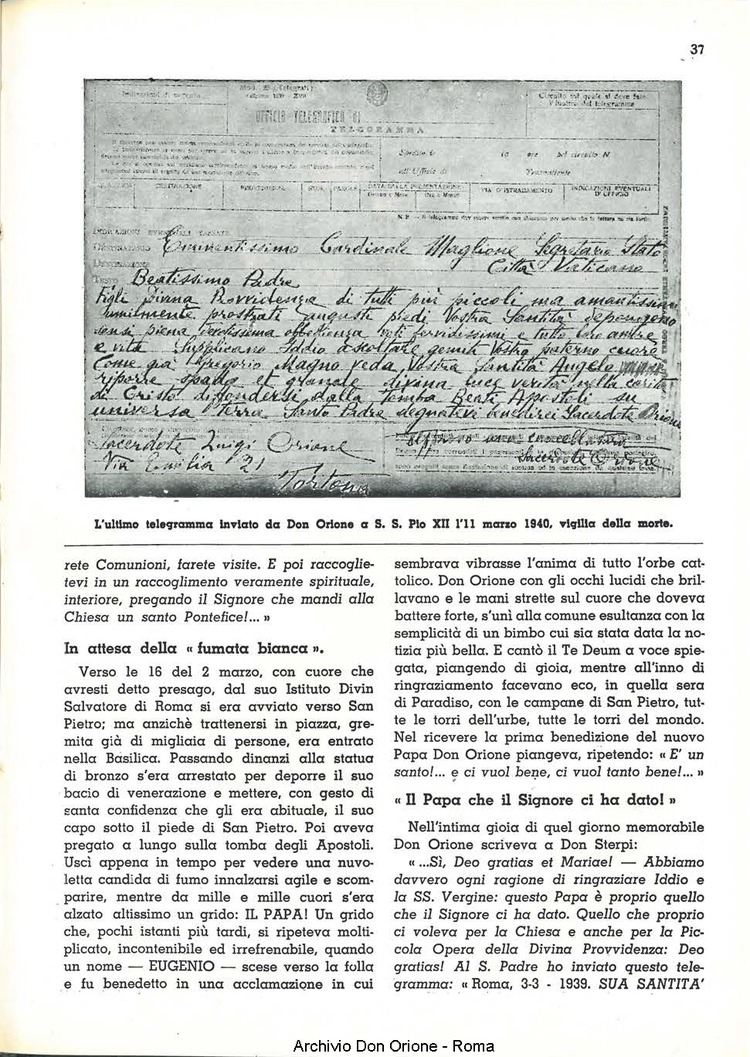 37
UFFICIO TELEGRAFICO DI
TELEGRAMMA
Circuito sul quale si deve fare
l'inoltro del telegramma
Spedito il
all'Ufficio di
Trasmittente
DESTINAZIONE
PAROLE
DATA DELLA PRESENTAZIONE
Giorno e Mese
Ore e Minuti
VIA D'ISTRADAMENTO
INDICAZIONI EVENTUALI
D'UFFICIO
Eminentissimo Cardinale Maglione Segretario Stato
Città Vaticano
Beatissimo Padre
Figli Divina Provvidenza di tutti più piccoli ma amantissimi
umilmente prostrati augusti piedi Vostra Santità depongono
sensi piena obbedienza voti fervidissimi e tutto loro amore
e vita Supplicano Iddio ascoltare gemiti Vostro paterno cuore
Come già Gregorio Magno veda Vostra Santità Angelo
riporre spada et grande divina luce verità nella carità
di Cristo diffondersi dalla tomba Beati Apostoli su
universa terra Santo Padre degnatevi benedirci Sacerdote Orione
Sacerdote Luigi Orione
Via Emilia 21
Tortona
Sacerdote Orione
L'ultimo telegramma inviato da Don Orione a S. S. Pio XII l'11 marzo 1940, vigilia della morte.
rete Comunioni, farete visite. E poi raccoglie-
tevi in un raccoglimento veramente spirituale,
interiore, pregando il Signore che mandi alla
Chiesa un santo Pontefice!... »
In attesa della « fumata bianca ».
Verso le 16 del 2 marzo, con cuore che
avresti detto presago, dal suo Istituto Divin
Salvatore di Roma si era avviato verso San
Pietro; ma anzichè trattenersi in piazza, gre-
mita già di migliaia di persone, era entrato
nella Basilica. Passando dinanzi alla statua
di bronzo s'era arrestato per deporre il suo
bacio di venerazione e mettere, con gesto di
santa confidenza che gli era abituale, il suo
capo sotto il piede di San Pietro. Poi aveva
pregato a lungo sulla tomba degli Apostoli.
Uscì appena in tempo per vedere una nuvo-
letta candida di fumo innalzarsi agile e scom-
parire, mentre da mille e mille cuori s'era
alzato altissimo un grido: IL PAPA! Un grido
che, pochi istanti più tardi, si ripeteva molti-
plicato, incontenibile ed irrefrenabile, quando
un nome — EUGENIO — scese verso la folla
e fu benedetto in una acclamazione in cui
sembrava vibrasse l'anima di tutto l'orbe cat-
tolico. Don Orione con gli occhi lucidi che bril-
lavano e le mani strette sul cuore che doveva
battere forte, s'unì alla comune esultanza con la
semplicità di un bimbo cui sia stata data la no-
tizia più bella. E cantò il Te Deum a voce spie-
gata, piangendo di gioia, mentre all'inno di
ringraziamento facevano eco, in quella sera
di Paradiso, con le campane di San Pietro, tut-
te le torri dell'urbe, tutte le torri del mondo.
Nel ricevere la prima benedizione del nuovo
Papa Don Orione piangeva, ripetendo: « E' un
santo!... e ci vuol bene, ci vuol tanto bene!... »
« Il Papa che il Signore ci ha dato! »
Nell'intima gioia di quel giorno memorabile
Don Orione scriveva a Don Sterpi:
« ...Sì, Deo gratias et Mariae! — Abbiamo
davvero ogni ragione di ringraziare Iddio e
la SS. Vergine: questo Papa è proprio quello
che il Signore ci ha dato. Quello che proprio
ci voleva per la Chiesa e anche per la Pic-
cola Opera della Divina Provvidenza: Deo
gratias! Al S. Padre ho inviato questo tele-
gramma: « Roma, 3-3 - 1939. SUA SANTITA'
Archivio Don Orione - Roma